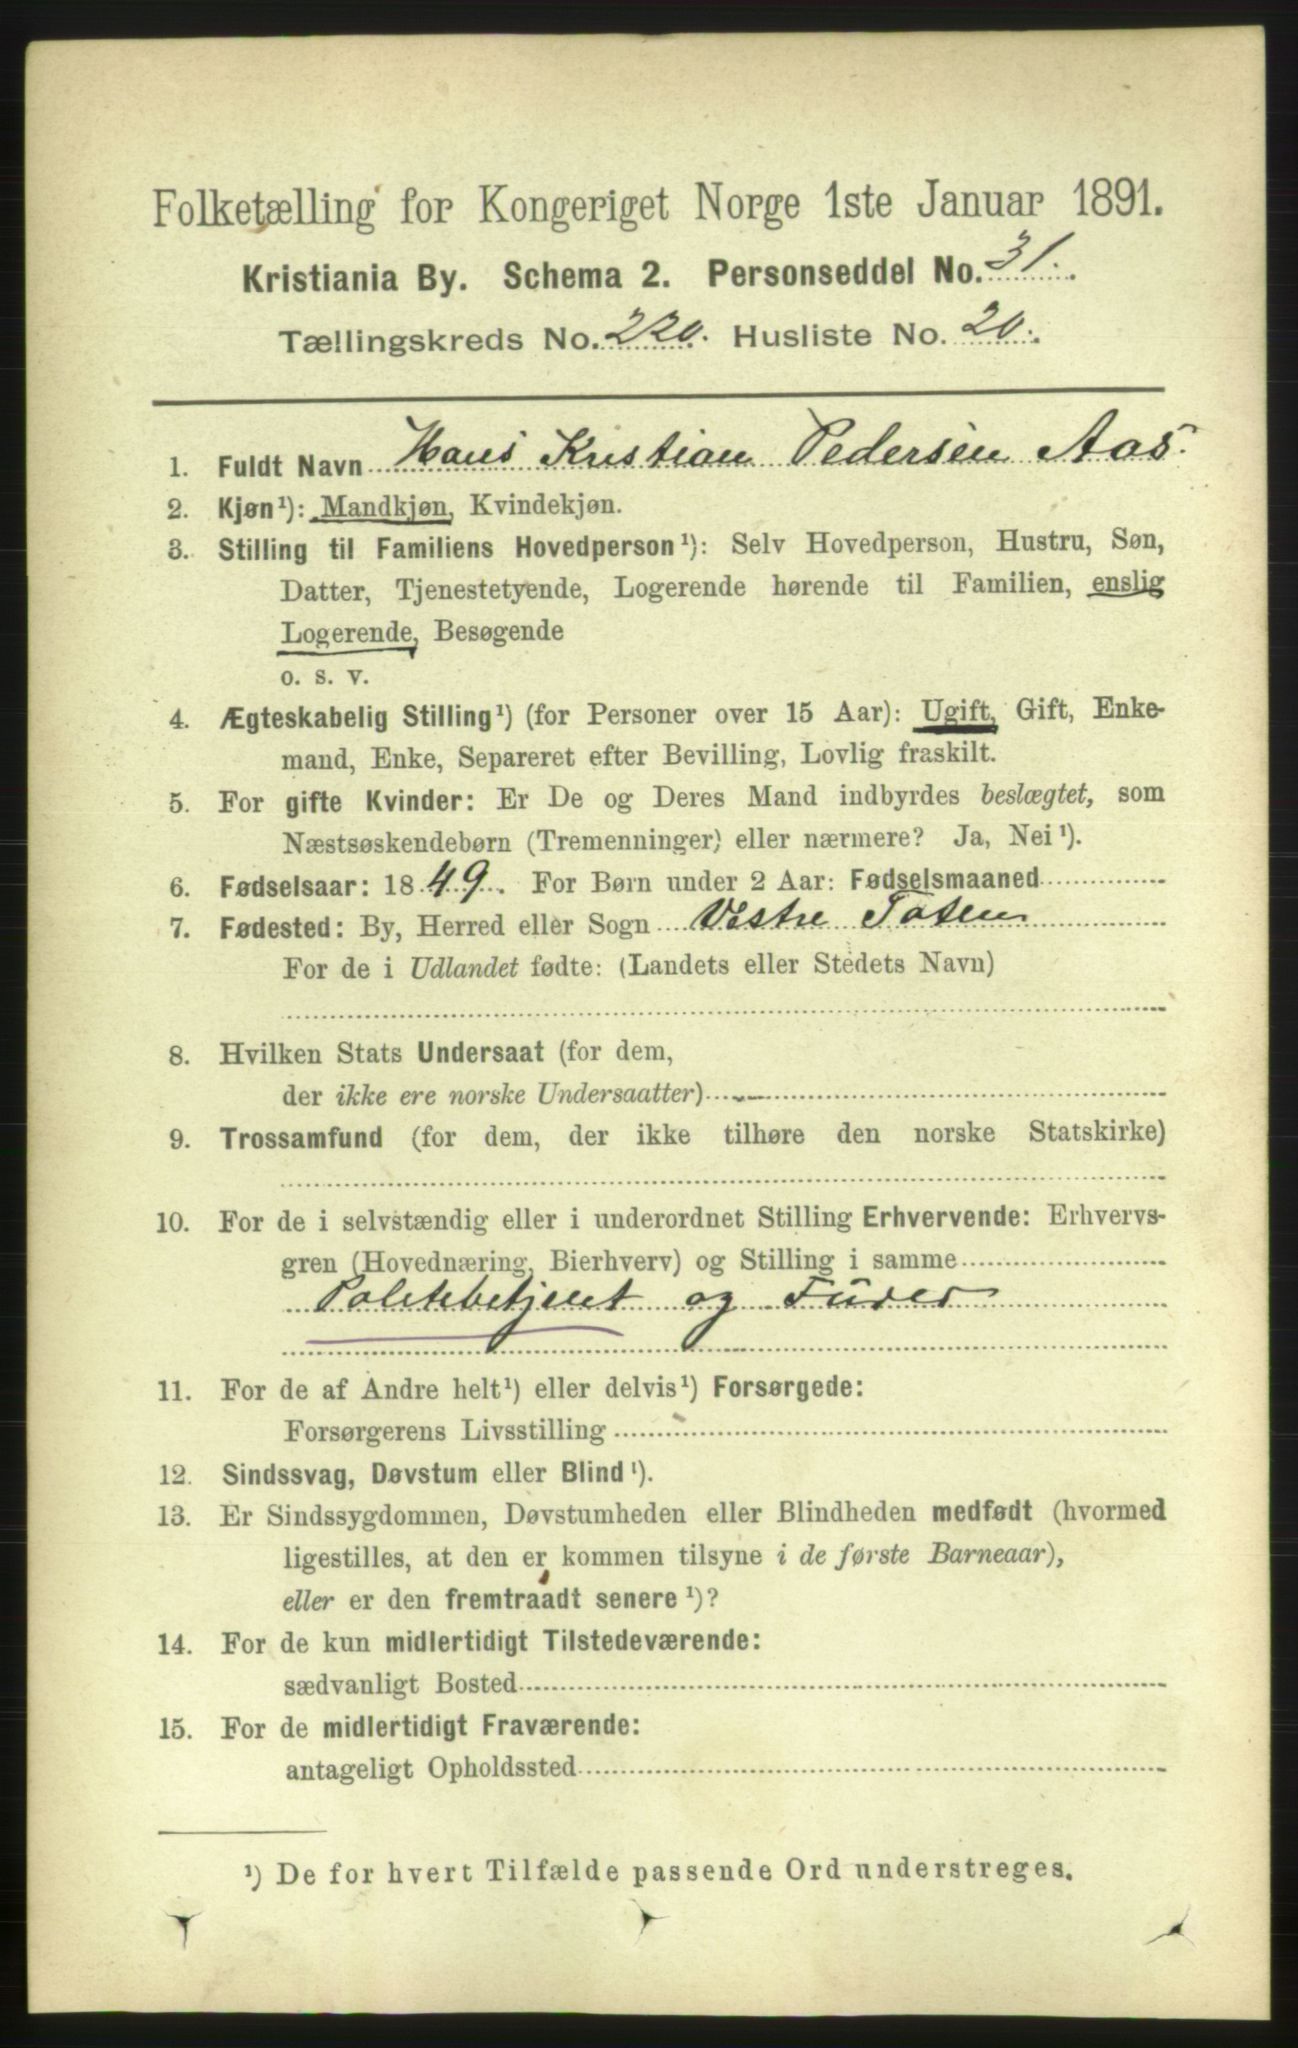 Folketælling for Kongeriget Norge 1ste Januar 1891.
Kristiania By. Schema 2. Personseddel No. 31.
Tællingskreds No. 220. Husliste No. 20.
1. Fuldt Navn Hans Kristian Pedersen Aas.
2. Kjøn¹): Mandkjøn, Kvindekjøn.
3. Stilling til Familiens Hovedperson¹): Selv Hovedperson, Hustru, Søn,
Datter, Tjenestetyende, Logerende hørende til Familien, enslig
Logerende, Besøgende
o. s. v.
4. Ægteskabelig Stilling¹) (for Personer over 15 Aar): Ugift, Gift, Enke-
mand, Enke, Separeret efter Bevilling, Lovlig fraskilt.
5. For gifte Kvinder: Er De og Deres Mand indbyrdes beslægtet, som
Næstsøskendebørn (Tremenninger) eller nærmere? Ja, Nei¹).
6. Fødselsaar: 1849. For Børn under 2 Aar: Fødselsmaaned
7. Fødested: By, Herred eller Sogn Vestre Toten
For de i Udlandet fødte: (Landets eller Stedets Navn)
8. Hvilken Stats Undersaat (for dem,
der ikke ere norske Undersaatter)
9. Trossamfund (for dem, der ikke tilhøre den norske Statskirke)
10. For de i selvstændig eller i underordnet Stilling Erhvervende: Erhvervs-
gren (Hovednæring, Bierhverv) og Stilling i samme
Politibetjent og
11. For de af Andre helt¹) eller delvis¹) Forsørgede:
Forsørgerens Livsstilling
12. Sindssvag, Døvstum eller Blind¹).
13. Er Sindssygdommen, Døvstumheden eller Blindheden medfødt (hvormed
ligestilles, at den er kommen tilsyne i de første Barneaar),
eller er den fremtraadt senere¹)?
14. For de kun midlertidigt Tilstedeværende:
sædvanligt Bosted
15. For de midlertidigt Fraværende:
antageligt Opholdssted
¹) De for hvert Tilfælde passende Ord understreges.